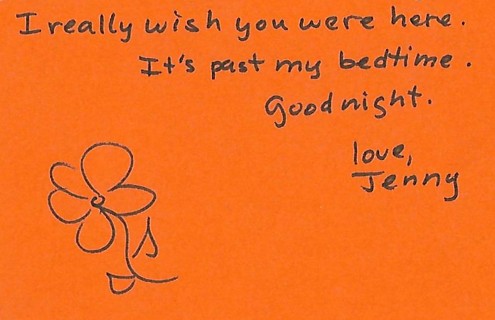 I really wish you were here.
It's past my bedtime.
Good night.
love,
Jenny